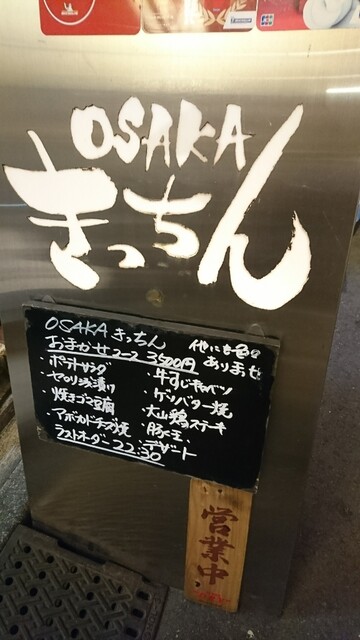 MICHELIN
JCB
OSAKA
きっちん
OSAKA きっちん
おまかせコース 3500円
他にも
ありませ
・ポテトサラダ
・セロリ浅漬け
・焼きゴマ豆腐
・アボカドチーズ焼
・牛すじキャベツ
・ゲソバター焼
・大山鶏ステーキ
・豚と玉
・デザート
ラストオーダー 22:30
営業中